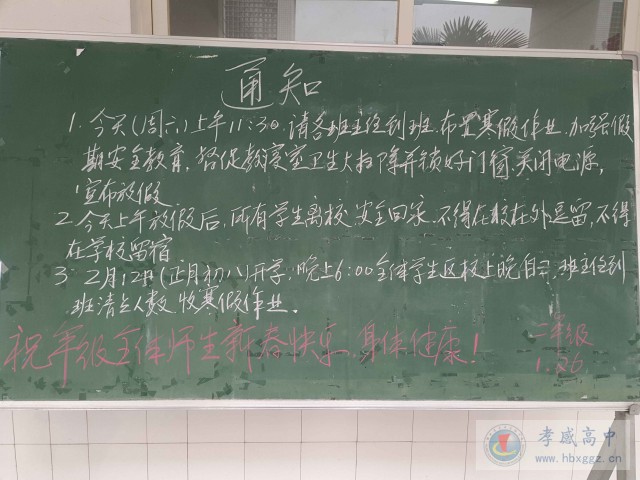 通知
1. 今天(周六)上午11:30,请各班主任到班,布置寒假作业,加强假
期安全教育,督促教室卫生大扫除并锁好门窗,关闭电源,
宣布放假.
2. 今天上午放假后,所有学生离校,安全回家,不得在校在外逗留,不得
在学校留宿
3. 2月12日(正月初八)开学,晚上6:00全体学生返校上晚自习,班主任到
班清点人数,收寒假作业.
祝年级全体师生新春快乐,身体健康!
二年级
1.26
孝感高中
www.hbxggz.cn